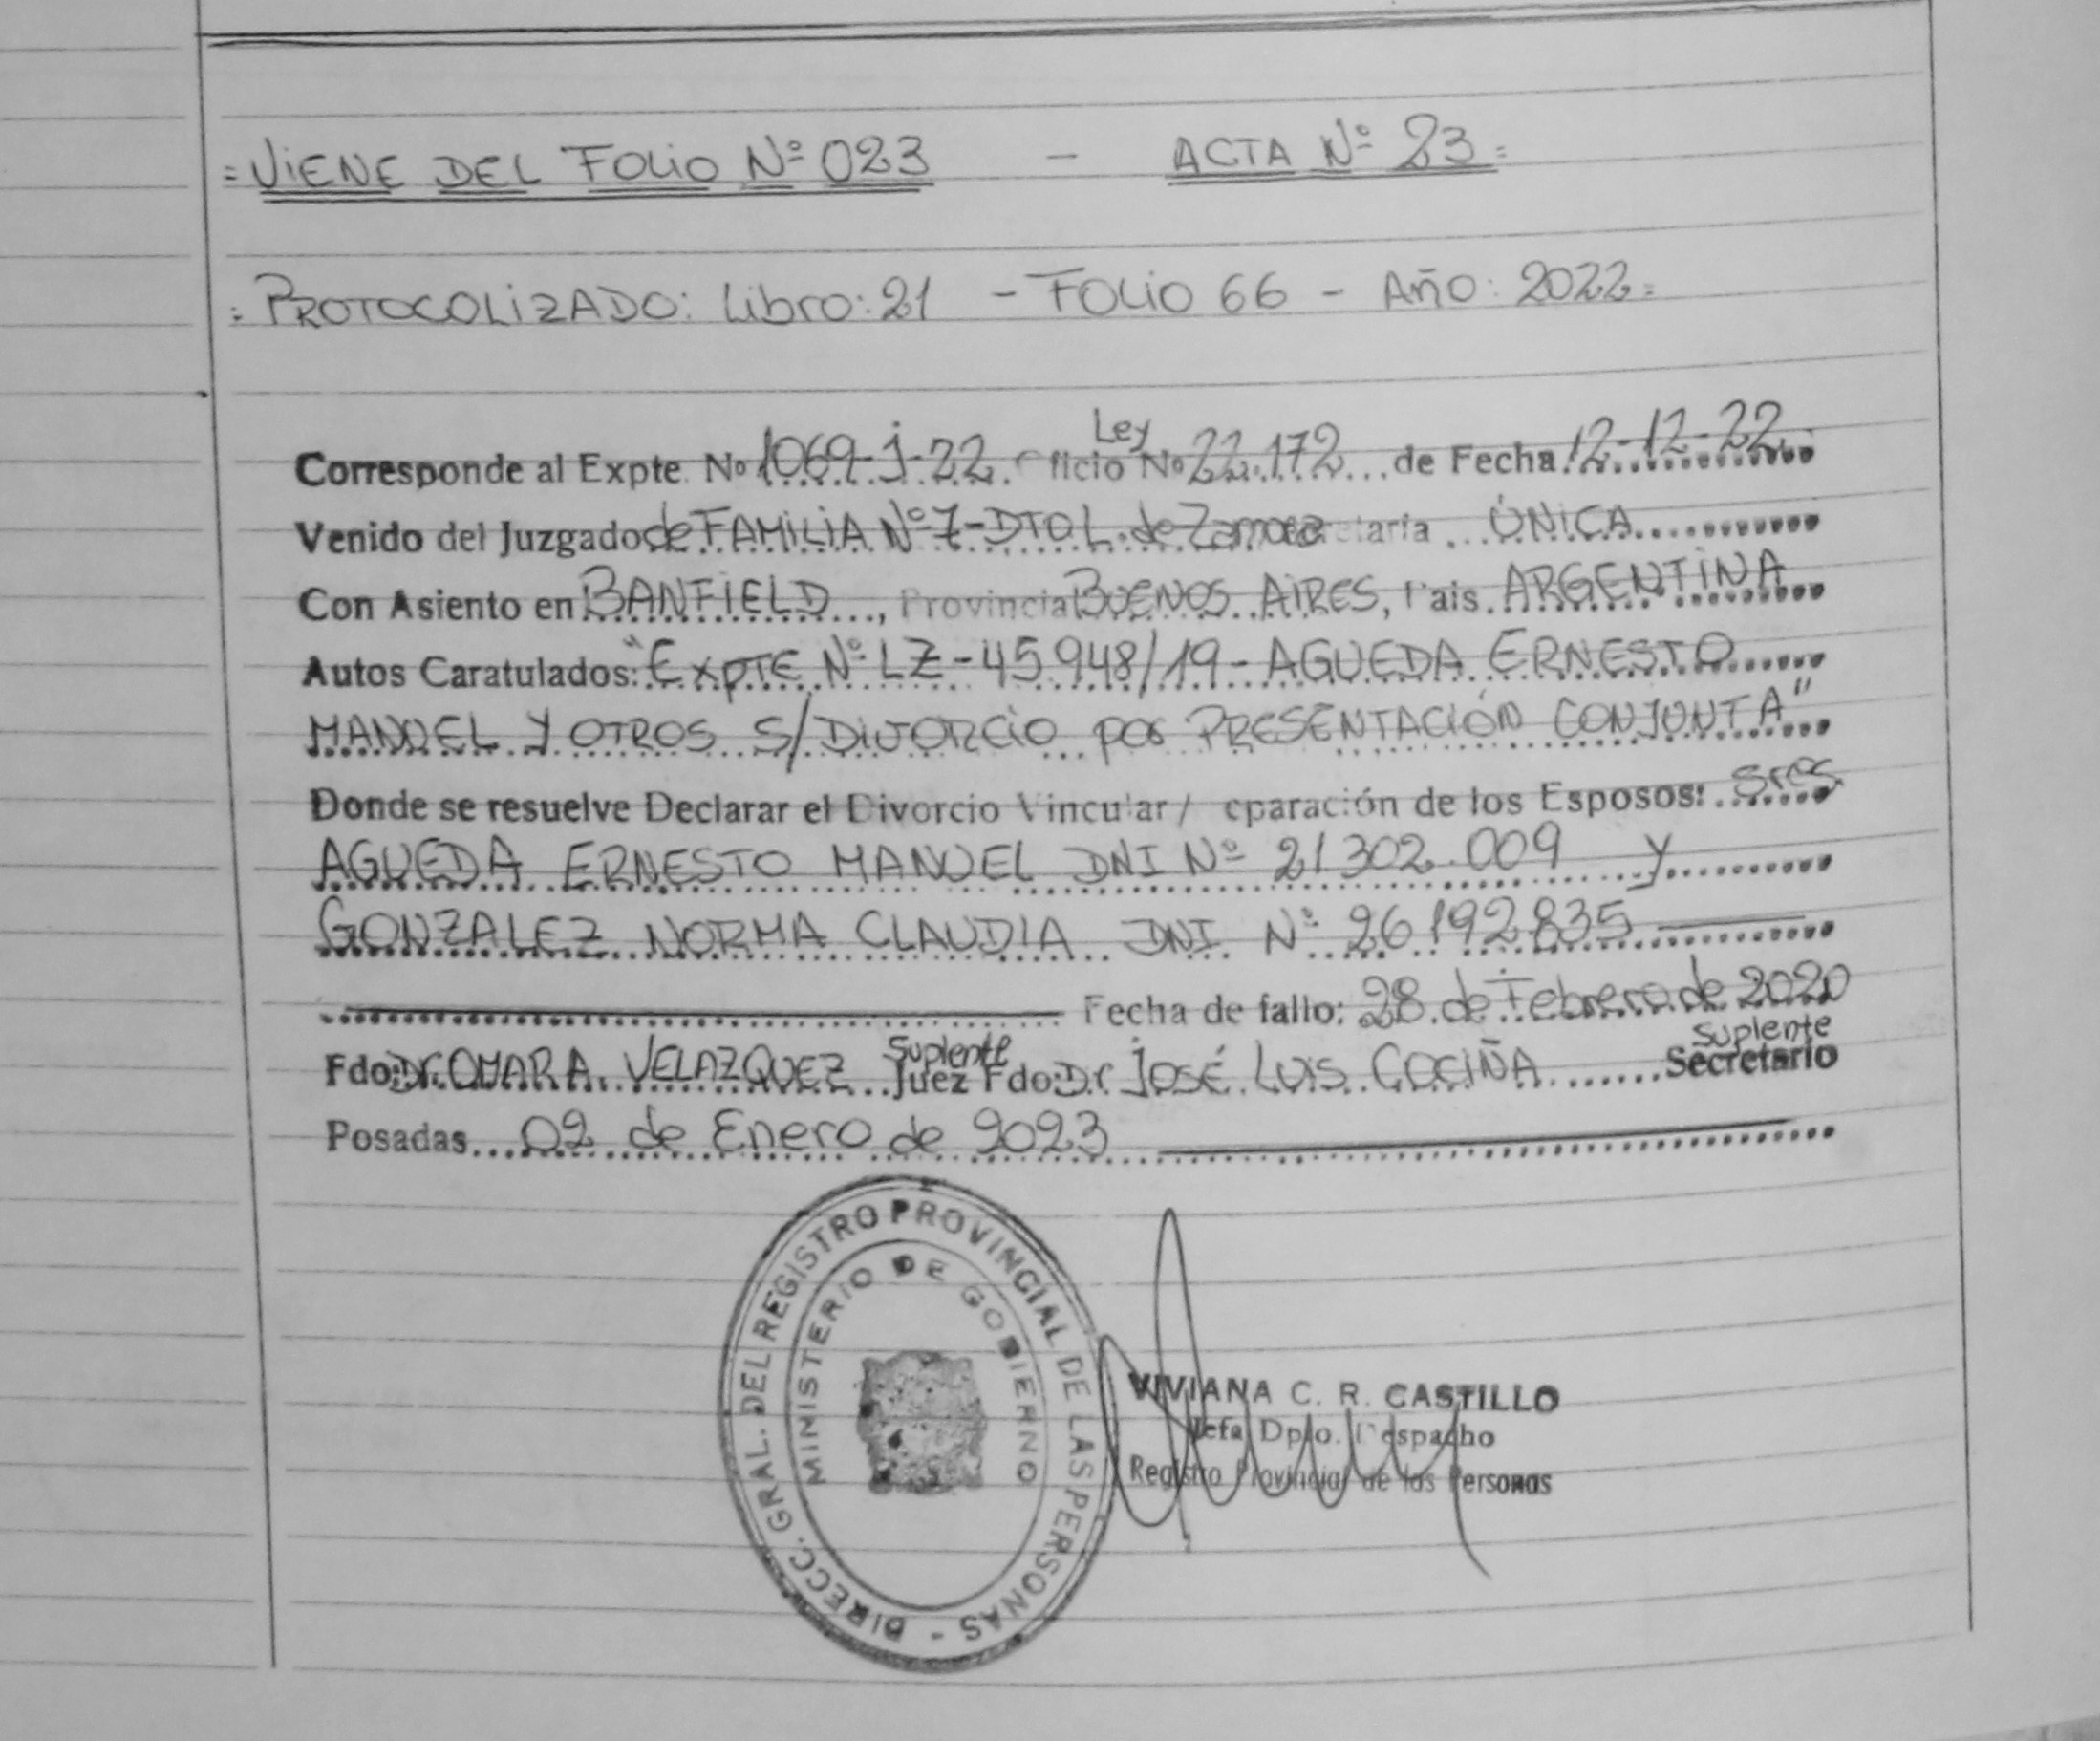 = VIENE DEL FOLIO Nº 023 - ACTA Nº 23 =
: PROTOCOLIZADO: Libro: 21 - FOLIO 66 - Año: 2022 =
Ley
Corresponde al Expte. Nº 1069-J-22 Oficio Nº 22.172 ... de Fecha 12-12-22
Venido del Juzgado de FAMILIA Nº 7 - DTO L. de Zamora Secretaria ... ÚNICA
Con Asiento en BANFIELD ..., Provincia BUENOS AIRES, Pais ARGENTINA
Autos Caratulados: "Expte Nº LZ-45948/19 - AGUEDA ERNESTO
MANUEL Y OTROS S/ DIVORCIO por PRESENTACIÓN CONJUNTA"
Donde se resuelve Declarar el Divorcio Vincular / eparación de los Esposos: Sres
AGUEDA ERNESTO MANUEL DNI Nº 21302.009 y
GONZALEZ NORMA CLAUDIA DNI Nº 26192835
Fecha de fallo: 28 de Febrero de 2020
Suplente Suplente
Fdo: Dr. OMAR A. VELAZQUEZ Juez Fdo: Dr. JOSÉ LUIS COCIÑA Secretario
Posadas 02 de Enero de 2023
DIRECC. GRAL. DEL REGISTRO PROVINCIAL DE LAS PERSONAS -
MINISTERIO DE GOBIERNO
VIVIANA C. R. CASTILLO
Jefa Dpto. Despacho
Registro Provincial de las Personas